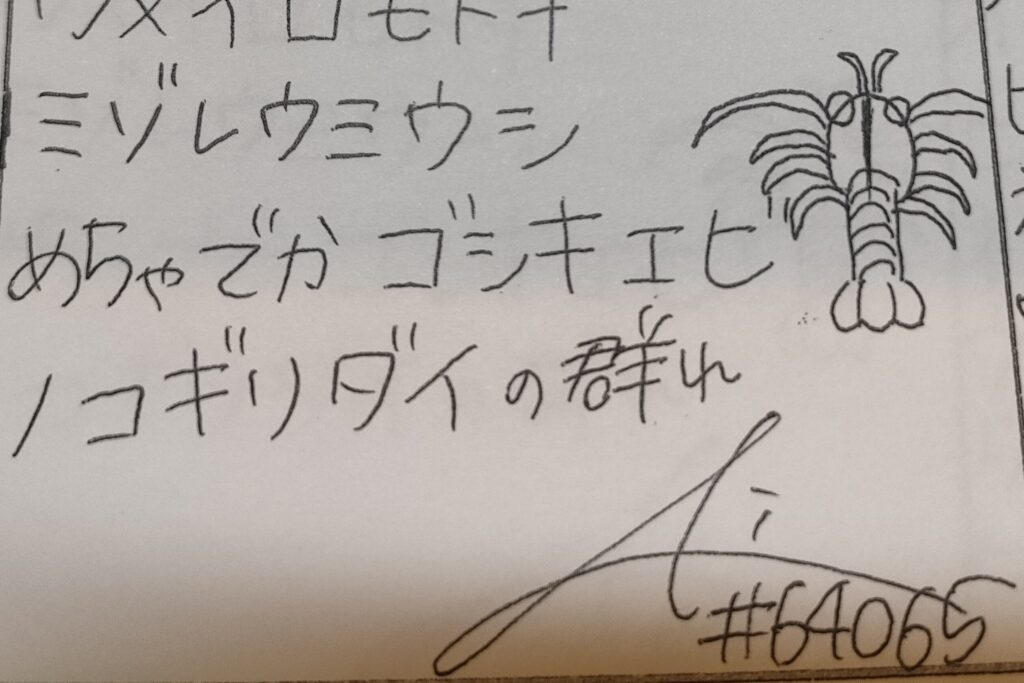 ウメイロモドキ
ミゾレウミウシ
めちゃでか ゴシキエビ
ノコギリダイの群れ
Ai
#64065